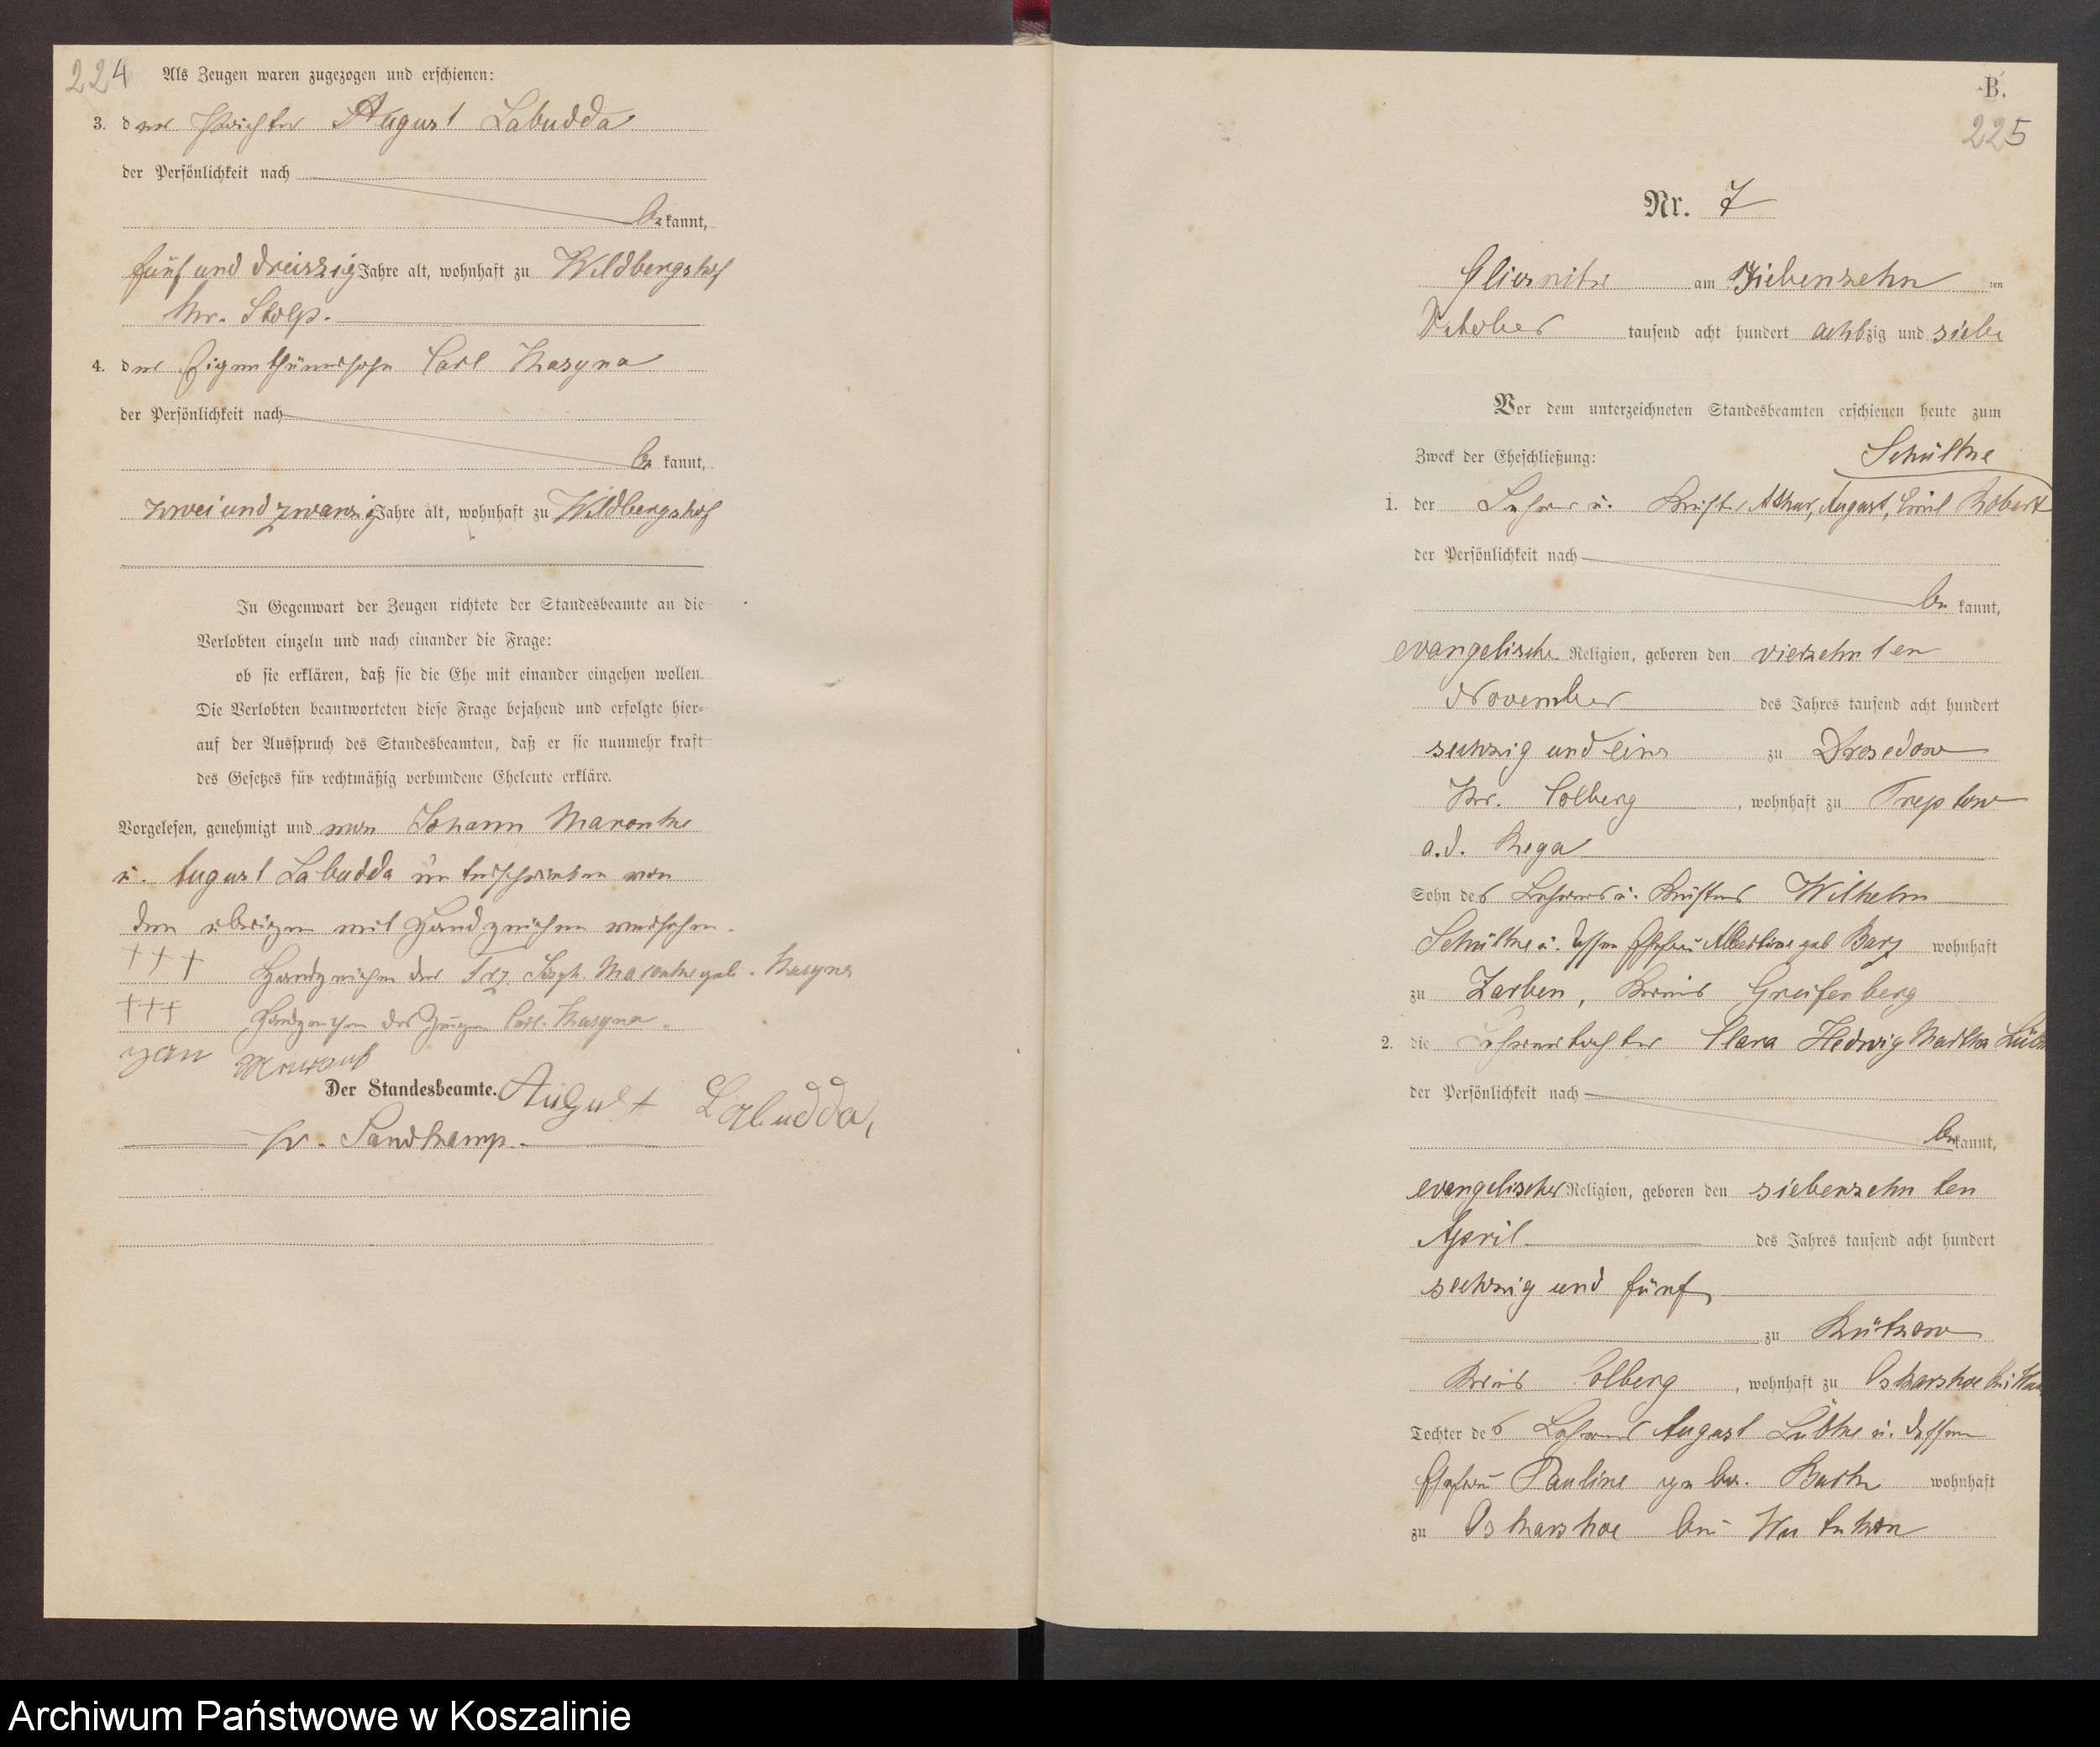 224
Als Zeugen waren zugezogen und erschienen:
3. der August Labudda
der Persönlichkeit nach
bekannt,
fünf und dreiszig Jahre alt, wohnhaft zu Wildbergshof
Kr. Stolp.
4. der Eigenthümersohn Carl Kasyna
der Persönlichkeit nach
bekannt,
zwei und zwanzig Jahre alt, wohnhaft zu Wildbergshof
In Gegenwart der Zeugen richtete der Standesbeamte an die
Verlobten einzeln und nach einander die Frage:
ob sie erklären, daß sie die Ehe mit einander eingehen wollen.
Die Verlobten beantworteten diese Frage bejahend und erfolgte hier-
auf der Ausspruch des Standesbeamten, daß er sie nunmehr kraft
des Gesetzes für rechtmäßig verbundene Eheleute erkläre.
Vorgelesen, genehmigt und von Johann Maronke
u. August Labudda unterschrieben von
den übrigen mit Handzeichen versehen.
+++ Handzeichen der Maronke geb. Kasyna
+++ Handzeichen des Zeugen Carl Kasyna.
Der Standesbeamte. August Labudda,
Sandkamp.
B.
225
Nr. 7
Gliesnitz am Siebenzehn ten
October tausend acht hundert achtzig und siebe
Vor dem unterzeichneten Standesbeamten erschienen heute zum
Zweck der Eheschließung: Schültke
1. der Lehrer u. Küster Athur, August, Emil Robert
der Persönlichkeit nach
bekannt,
evangelische Religion, geboren den vierzehnten
November des Jahres tausend acht hundert
sechzig und eins zu Drosedow
Kr. Colberg, wohnhaft zu Treptow
a.d. Rega
Sohn des Lehrers u. Küsters Wilhelm
Schültke u. dessen Ehefrau Albertine geb Barz wohnhaft
zu Zarben, Kreis Greifenberg
2. die Lehrertochter Clara Hedwig Martha
der Persönlichkeit nach
bekannt,
evangelischer Religion, geboren den siebenzehn ten
April des Jahres tausend acht hundert
sechzig und fünf
zu
Kreis Colberg, wohnhaft zu Oskarshoe bei
Tochter des Lehrers August Lübke u. dessen
Ehefrau Pauline geb. wohnhaft
zu Oskarshoe bei
Archiwum Państwowe w Koszalinie